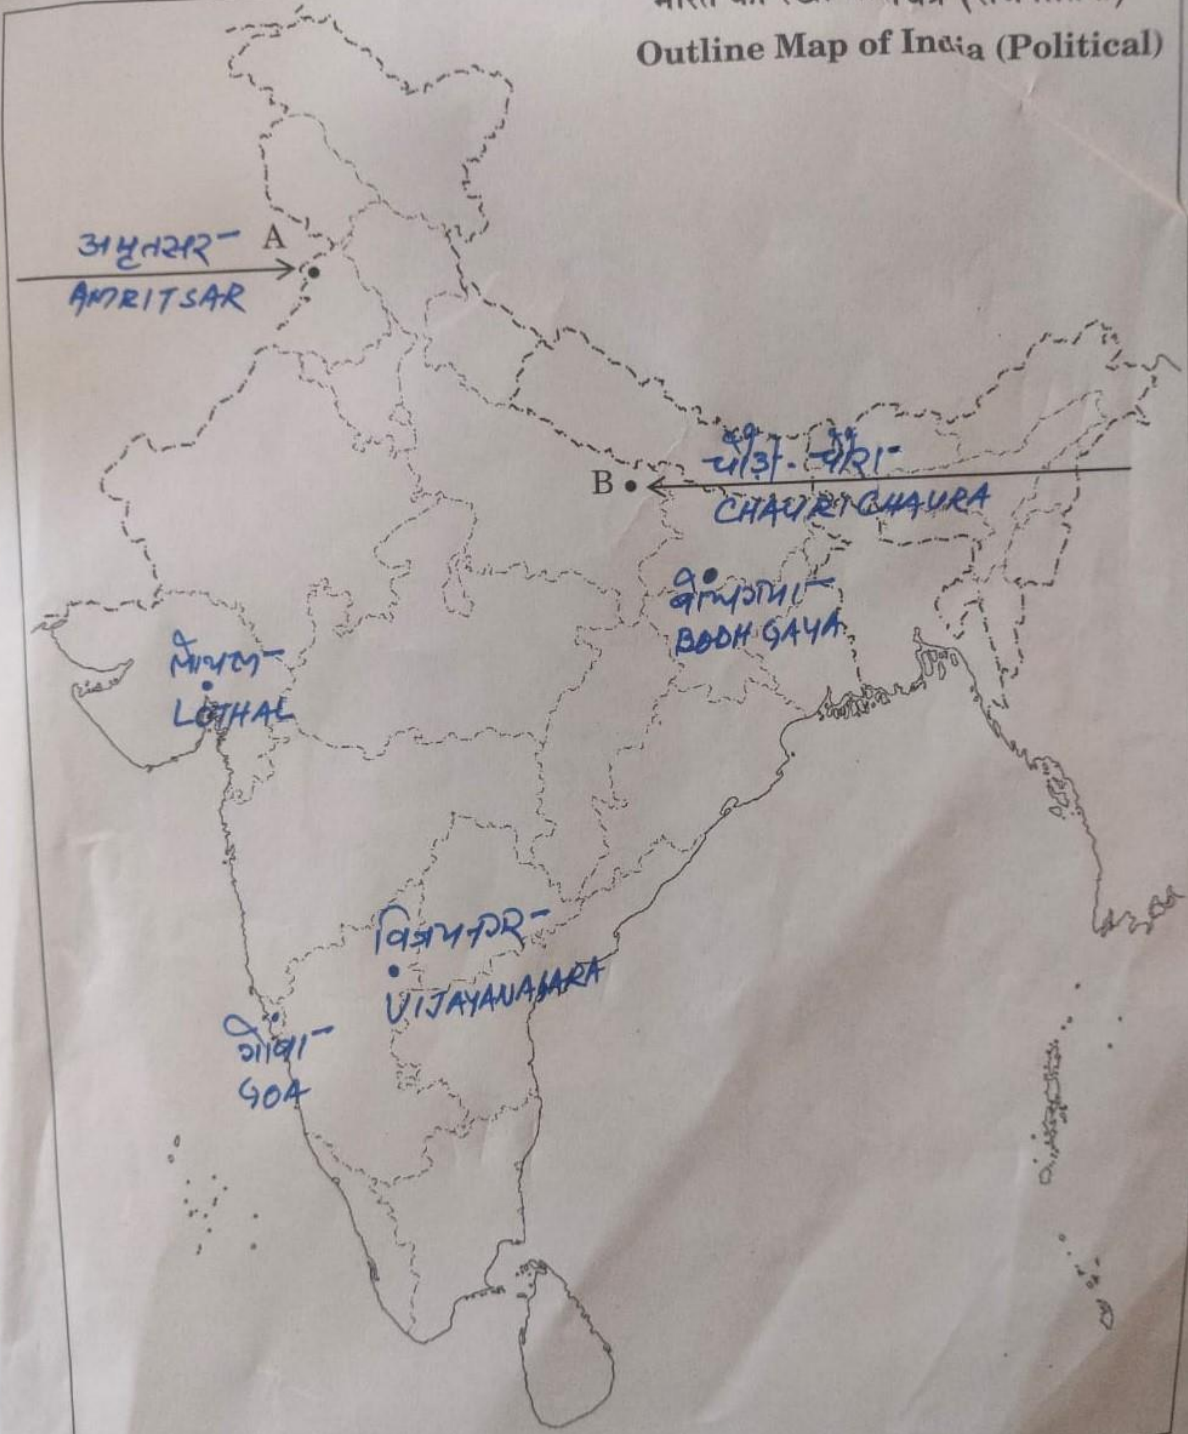 Outline Map of India (Political)
अमृतसर
A
AMRITSAR
चौरी-चौरा
B
CHAURI CHAURA
बोधगया
BODH GAYA
लोथल
LOTHAL
विजयनगर
VIJAYANAGARA
गोवा
GOA